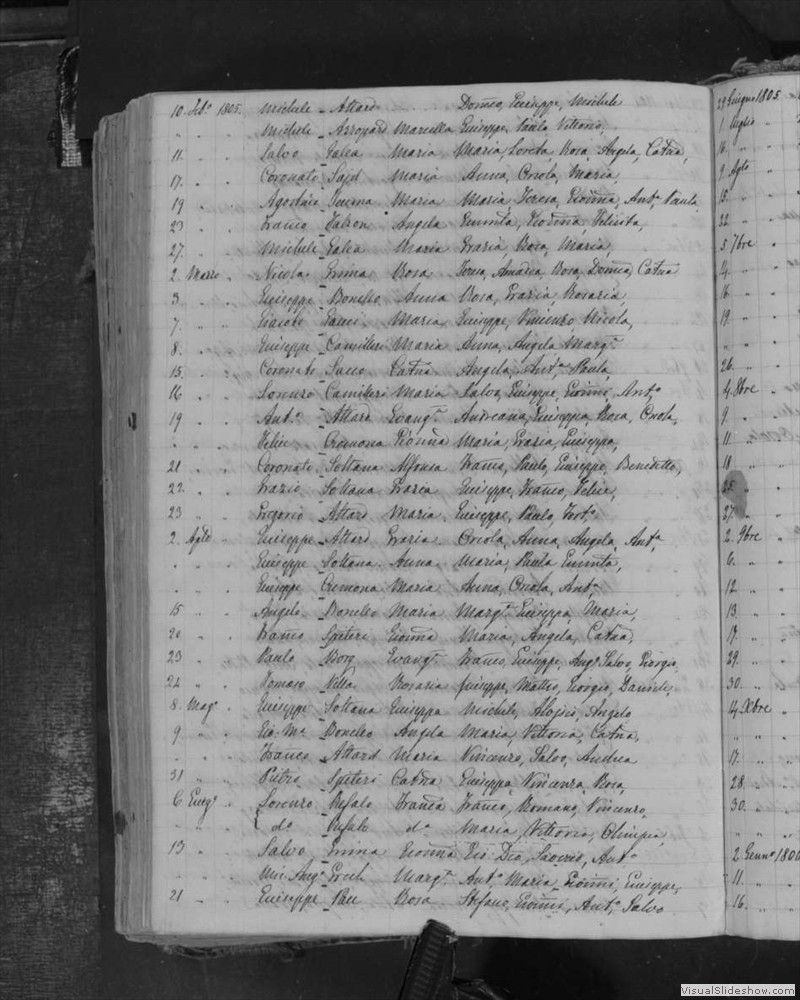 10. Feb.o 1805. Michele Attard Dom.co, Giuseppe, Michele
" " " Michele Azzopard Marcella Giuseppe, Paulo Vittorio,
11. " " Salvo Galea Maria Maria, Loreta, Rosa, Angela, Cat.na,
17. " " Coronato Said Maria Anna, Orsola, Maria,
19 " " Agostino Maria Maria Teresa, Gio.nna, Ant.a Paula
23 " " Franco Falzon Angela Ermita, Gio.nna, Felicita,
27. " " Michele Galea Maria Grazia Rosa, Maria,
2. Marzo " Nicola Ermina Rosa Teresa, Amadea, Rosa, Dom.ca, Cat.na
3 " " Giuseppe Boncleo Anna Rosa, Grazia, Rosaria,
7. " " Giacobe Maria Giuseppe, Vincenzo Nicola,
8. " " Giuseppe Camilleri Maria Anna, Angela Marg.ta
15. " " Coronato Sacco Cat.na Angela, Ant.a Paula,
16 " " Lorenzo Camilleri Maria Salvo, Giuseppe, Gio.nni, Ant.o
19 " " Ant.o Attard Evang.ta Andreana, Giuseppa, Rosa, Orsola,
" " " Felice Cremona Gio.nna Maria, Grazia, Giuseppa,
21 " " Coronato Soltana Alfonsa Franco, Paulo, Giuseppe, Benedetto,
22. " " Grazio Soltana Grazia Giuseppe, Franco, Felice,
23 " " Gregorio Attard Maria Giuseppe, Paulo,
2. Aple " Giuseppe Attard Grazia Orsola, Anna, Angela, Ant.a,
" " " Giuseppe Soltana Anna Maria, Paula
" " " Giuseppe Cremona Maria Anna, Orsola, Ant.a
15 " " Angelo Boncleo Maria Marg.ta Giuseppa, Maria,
20 " " Franco Spiteri Gio.nna Maria, Angela, Cat.na,
23 " " Paulo Borg Evang.ta Franco, Giuseppe, Ang.o Salvo, Giorgio
24 " " Tomaso Vella Rosaria Giuseppe, Matteo, Giorgio, Daniele,
8. Mag.o " Giuseppe Soltana Giuseppa Michele, Alojsio, Angelo
9 " " Gio. M.a Boncleo Angela Maria, Vittoria, Cat.na,
" " " Franco Attard Maria Vincenzo, Salvo, Andrea
31 " " Pietro Spiteri Cat.na Giuseppa, Vincenza, Rosa,
6 Giug.o " Lorenzo Refalo Franca Franco, Romano, Vincenzo,
" " " d.o Refalo d.a Maria, Vittoria, Olimpia,
13 " " Salvo Ermina Gio.nna Gio. Dio, Saverio, Ant.o
" " " Mic. Ang.o Grech Marg.ta Ant.o Maria, Gio.nni, Giuseppe,
21 " " Giuseppe Pace Rosa Stefano, Gio.nni, Ant.o, Salvo
29 Giugno 1805
1 Luglio "
16. " "
9 Agto "
13. " "
22. " "
5 7bre "
14. "
16. "
19. "
" "
26. "
4 8bre "
9. "
11. "
18 "
25. "
27. "
2. 9bre "
6. "
12. "
13. "
17. "
29. "
30. "
14 Xbre "
" "
17. "
28. "
30. "
" "
2. Genn.o 180
11. "
16. "
VisualSlideshow.com